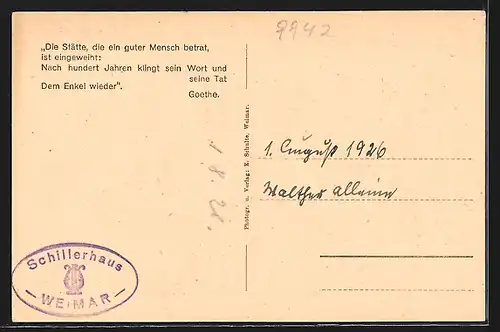 9942
„Die Stätte, die ein guter Mensch betrat,
ist eingeweiht:
Nach hundert Jahren klingt sein Wort und
seine Tat
Dem Enkel wieder".
Goethe.
1. 8. 26.
Photogr. u. Verlag: K. Schulte, Weimar.
1. August 1926
Walther alleine
Schillerhaus
— WEIMAR —